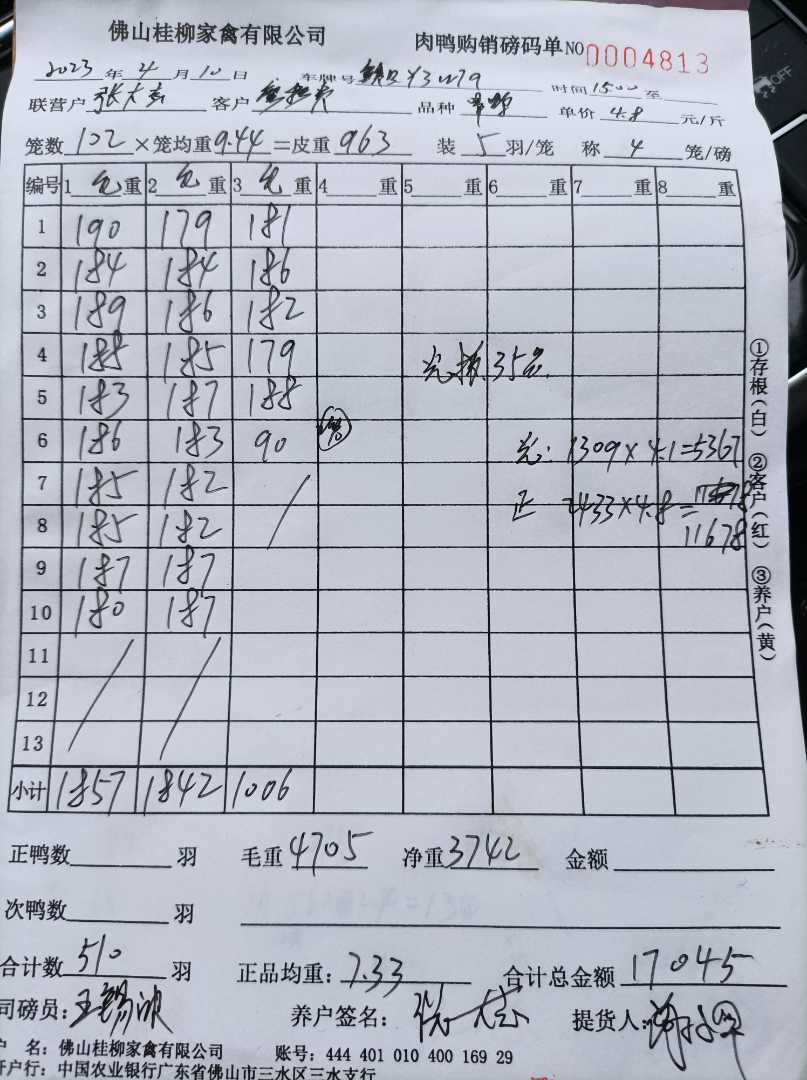 佛山桂柳家禽有限公司 肉鸭购销磅码单 NO 0004813
2023 年 4 月 10 日 车牌号 时间 1500 至
联营户 张大志 客户 品种 单价 4.8 元/斤
笼数 102 ×笼均重 9.44 =皮重 963 装 5 羽/笼 称 4 笼/磅
编号 1 重 2 重 3 重 4 重 5 重 6 重 7 重 8 重
1 190 179 181
2 184 184 186
3 189 186 182
4 188 185 179 35
5 183 187 188
6 186 183 90 1309×4.1=5367
7 185 182 / 正 2433×4.8=
8 185 182 11678
9 187 187
10 180 187
11 / /
12
13
小计 1857 1842 1006
①存根(白) ②客户(红) ③养户(黄)
正鸭数 羽 毛重 4705 净重 3742 金额
次鸭数 羽
合计数 510 羽 正品均重: 7.33 合计总金额 17045
司磅员: 王锡 养户签名: 张大志 提货人:
户 名: 佛山桂柳家禽有限公司 账号: 444 401 010 400 169 29
开户行: 中国农业银行广东省佛山市三水区三水支行